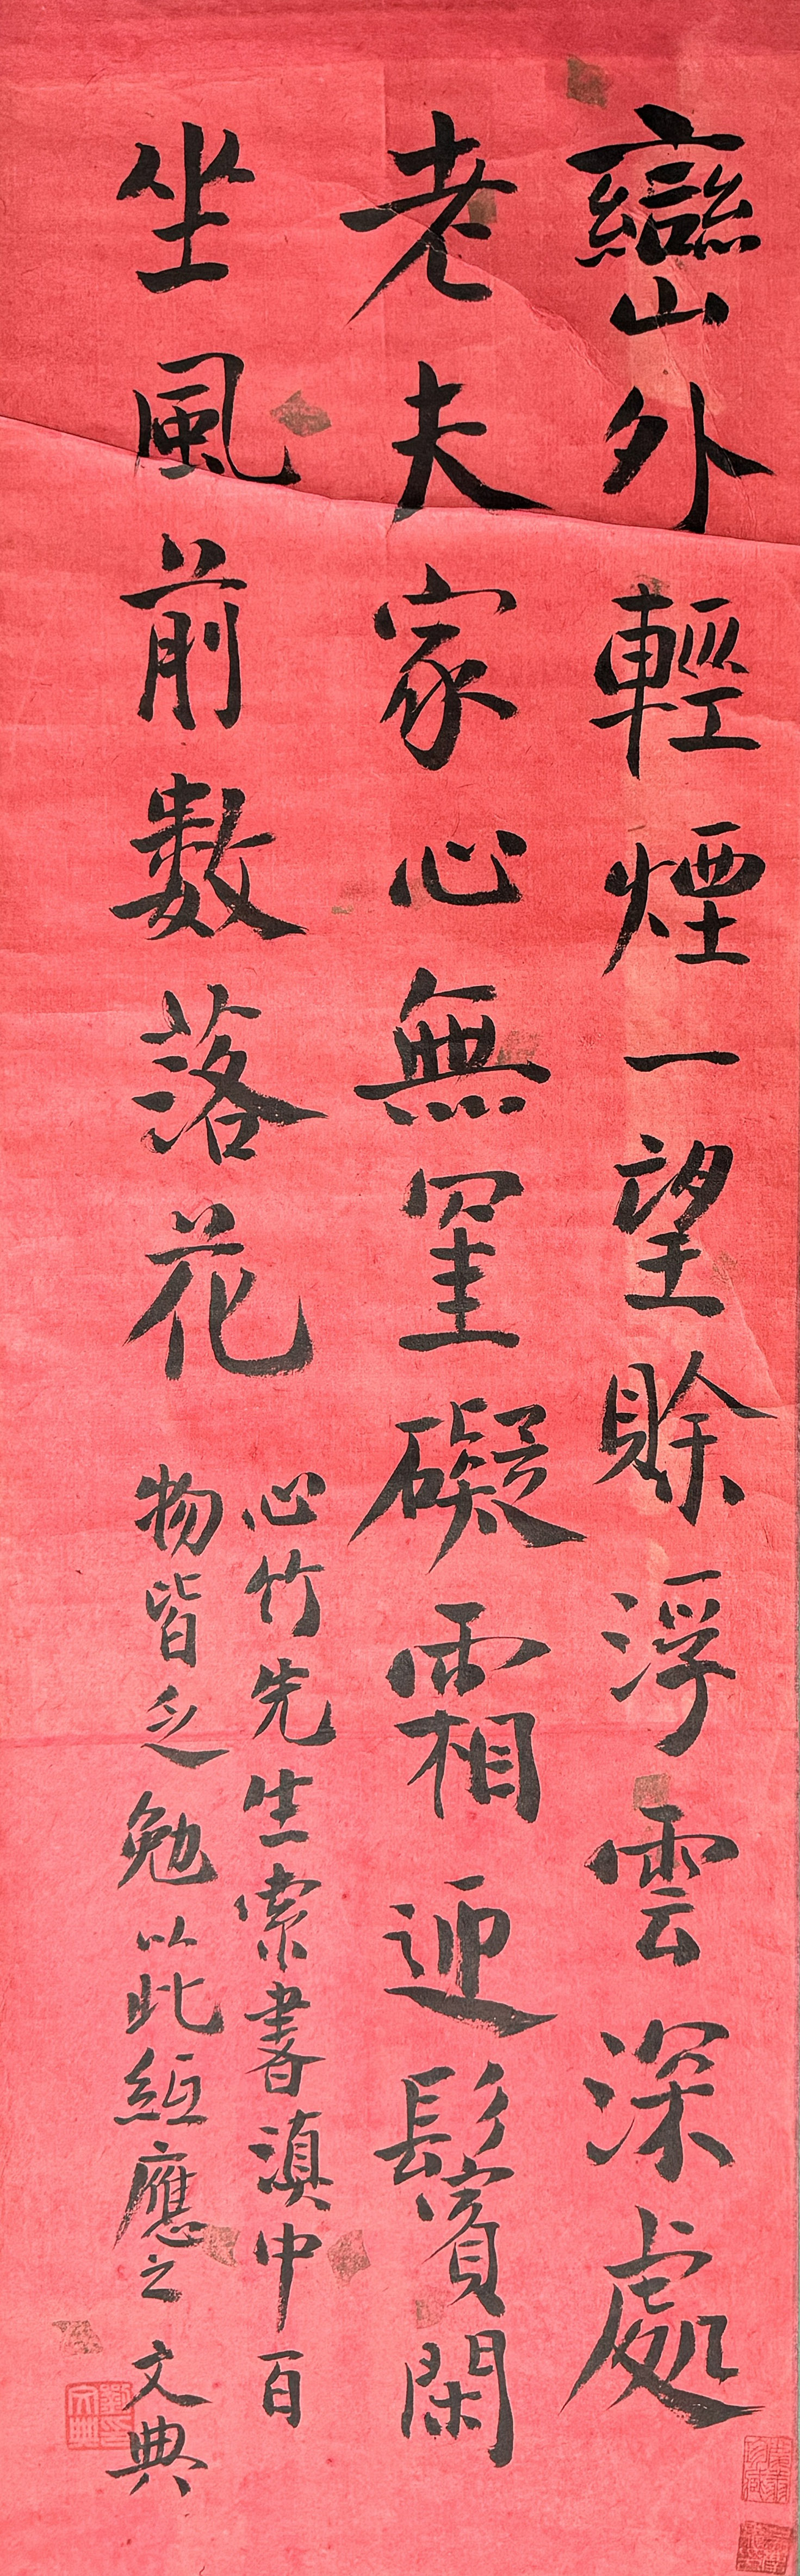 巒外輕煙一望賒浮雲深處
老夫家心無罣礙霜迎鬢賓閑
坐風前數落花
心竹先生索書滇中百
物皆乏勉以此紙應之
文典